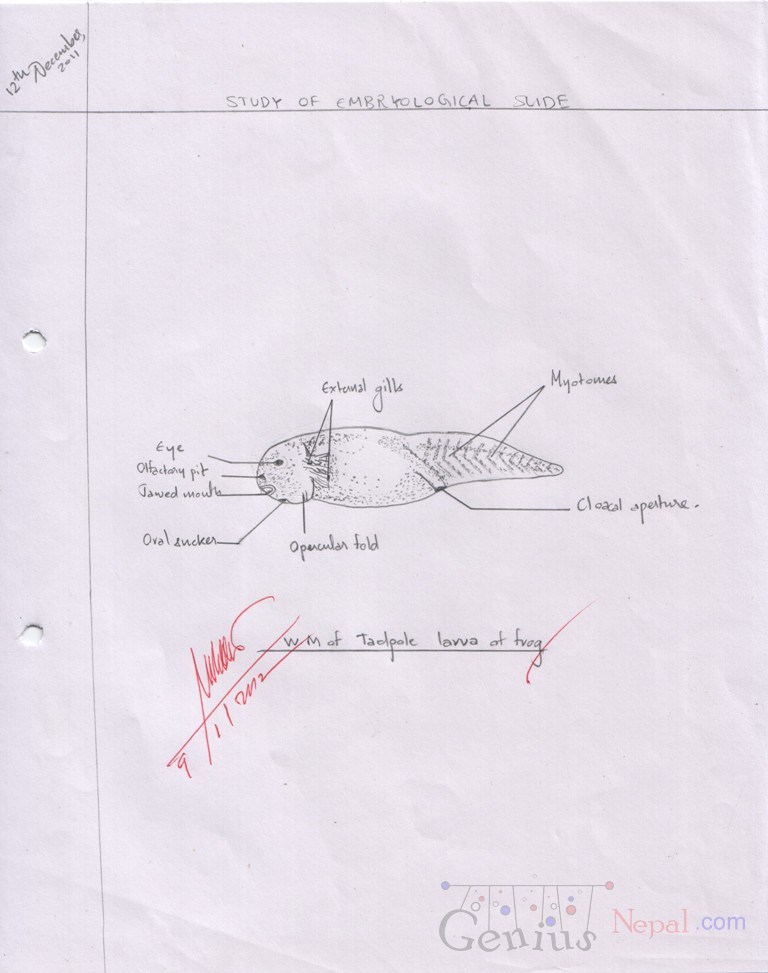 12th December,
2011
STUDY OF EMBRYOLOGICAL SLIDE
External gills
Myotomes
Eye
Olfactory pit
Jawed mouth
Oral sucker
Opercular fold
Cloacal aperture.
W.M of Tadpole larva of frog
9/1/2012
Genius Nepal.com